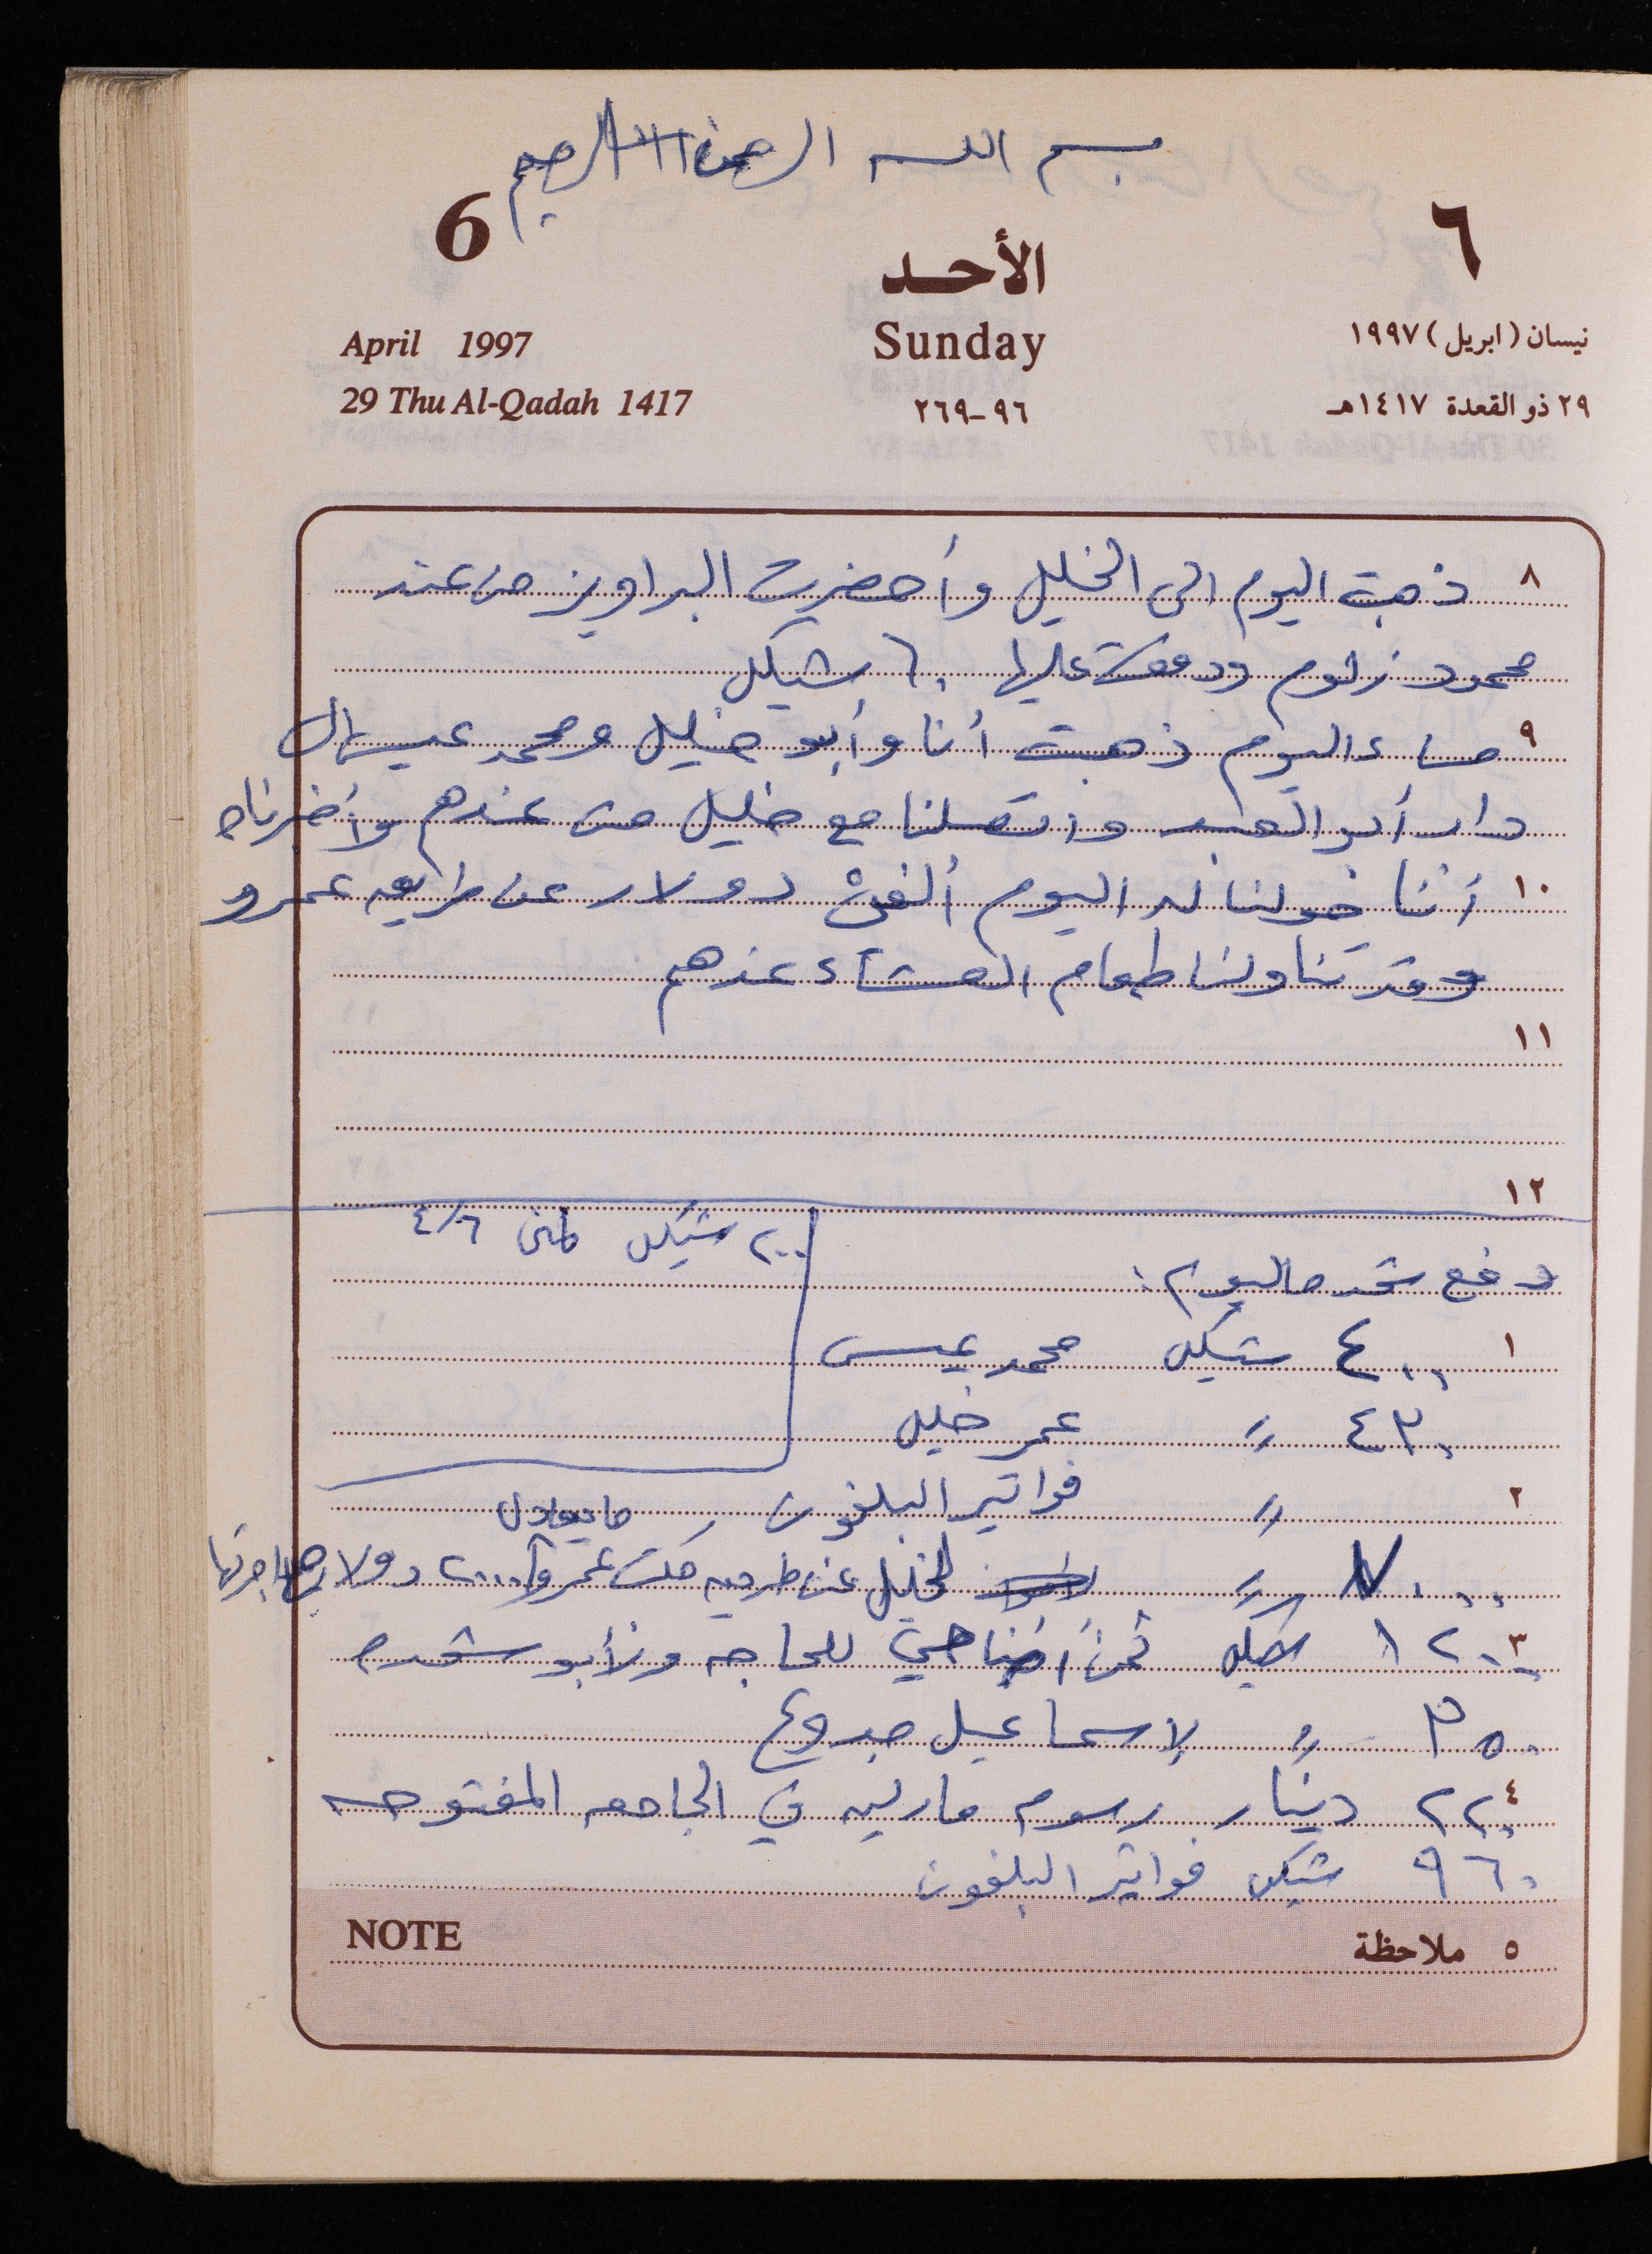 بسم الله الرحمن الرحيم
6
٦
الأحد
April 1997
Sunday
نيسان (ابريل) ١٩٩٧
29 Thu Al-Qadah 1417
٩٦-٢٦٩
٢٩ ذو القعدة ١٤١٧هـ
٨ ذهبت اليوم الى الخليل وأحضرت البراويز من عند
محمود زلوم ودفعت عليها ٦٠ شيكل
٩ مساء اليوم ذهبت أنا وأبو خليل ومحمد عيسى الى
دار أبو العبد واتصلنا مع خليل من عندهم وأخبرناه
١٠ أننا حولنا له اليوم ألفي دولار عن طريق عمرو
وقد تناولنا طعام العشاء عندهم
١١
١٢
٢٠٠ شيكل ٤/٦
دفع شحده اليوم:
١ ٤٠٠ شيكل محمد عيسى
٤٣٠ // عمر خليل
٢ // فواتير البلفون
ما يعادل
٧٠٠٠ // لخليل عن طريق عمرو ٢٠٠٠ دولار مع اجرتها
٣ ١٢٠٠ شيكل ثمن أضاحي للحاجه ولأبو شحده
٣٥٠ // لإسماعيل
٤ ٢٢٠ دينار رسوم في الجامعه المفتوحه
٩٦٠ شيكل فواتير البلفون
NOTE
٥ ملاحظة